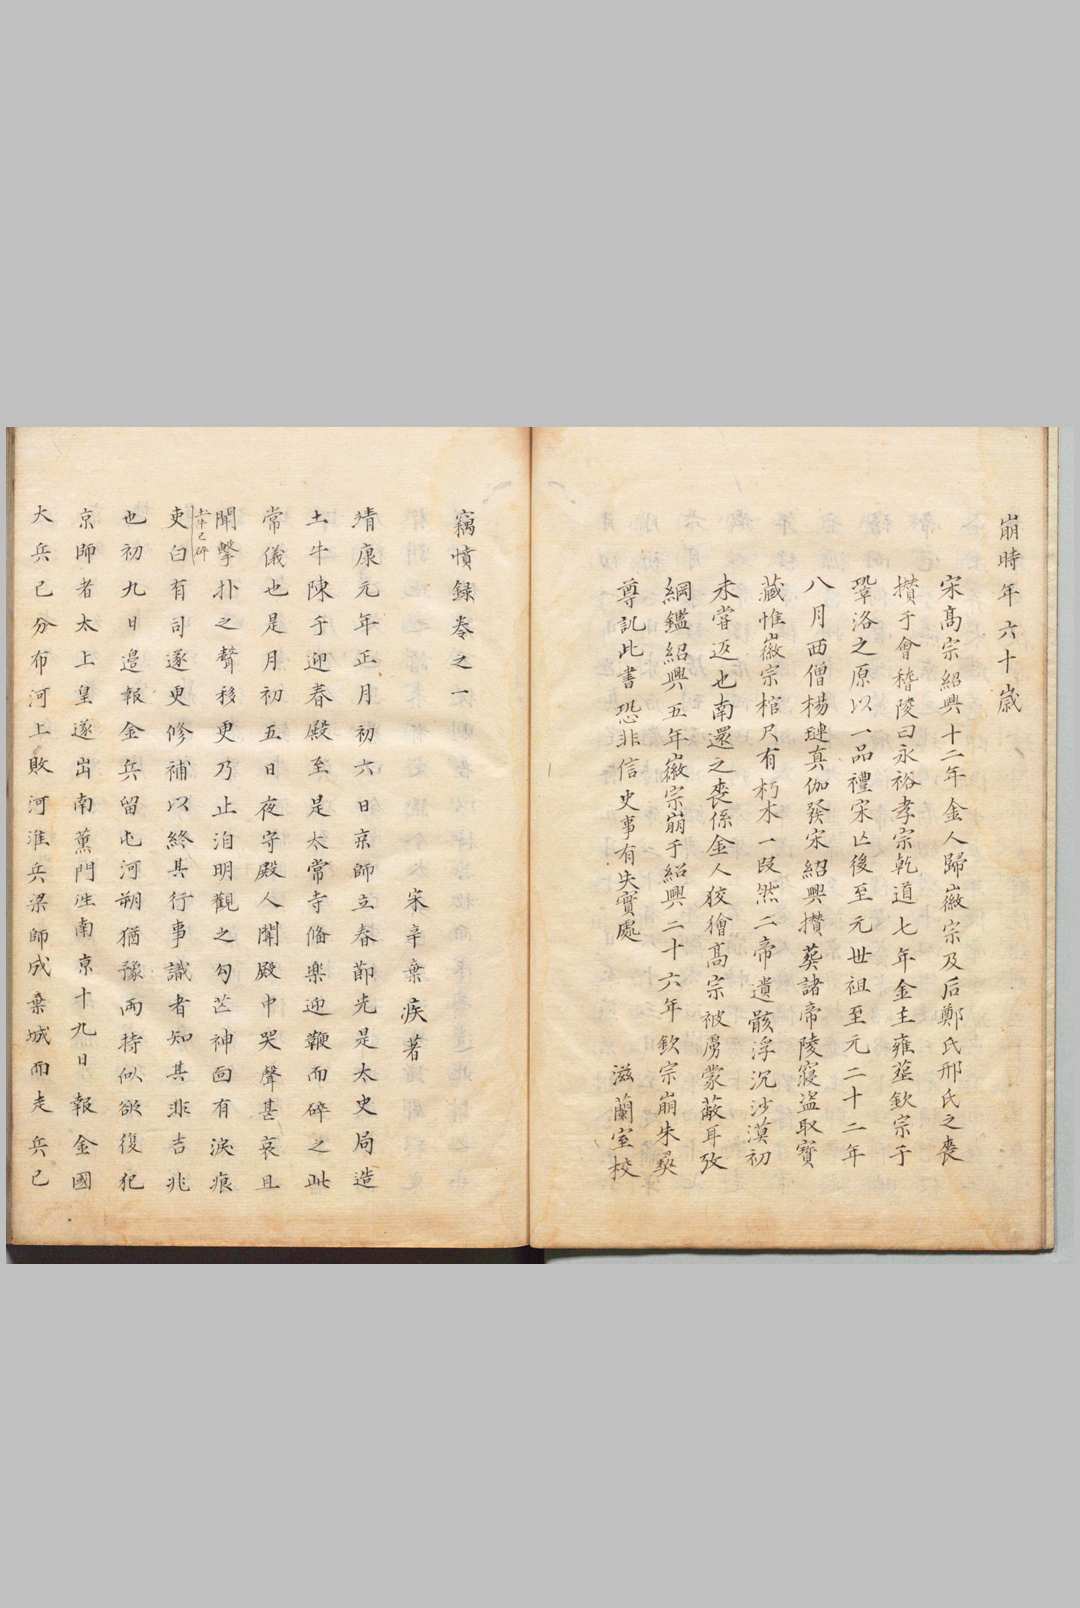 崩時年六十歲
宋髙宗紹興十二年金人歸徽宗及后鄭氏邢氏之喪
攅于會稽陵曰永裕孝宗乾道七年金主雍𦵏欽宗于
鞏洛之原以一品禮宋亡後至元世祖至元二十二年
八月西僧楊璉真伽發宋紹興攅𦵏諸帝陵寢盗取寳
藏惟徽宗棺尺有朽木一段然二帝遺骸浮沉沙漠初
未嘗返也南還之喪係金人狡獪髙宗被虜蒙蔽耳攷
綱鑑紹興五年徽宗崩于紹興二十六年欽宗崩朱彛
尊訊此書恐非信史事有失實處
滋蘭室校
竊憤録卷之一
宋辛棄疾著
靖康元年正月初六日京師立春節先是太史局造
土牛陳于迎春殿至是太常寺俻樂迎鞭而碎之此
常儀也是月初五日夜守殿人聞殿中哭聲甚哀且
聞擊扑之聲移更乃止洎明觀之勾芒神面有淚痕
土牛已碎
吏白有司遂更修補以終其行事識者知其非吉兆
也初九日邉報金兵留屯河朔猶豫兩持似欲復犯
京師者太上皇遂出南薫門徃南京十九日報金國
大兵已分布河上敗河淮兵梁師成棄城而走兵已